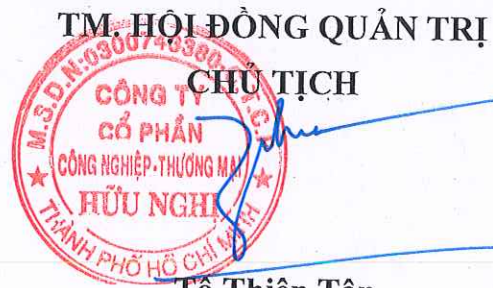 TM. HỘI ĐỒNG QUẢN TRỊ
CHỦ TỊCH
M.S.D.N:0300743380-C.T.C.P
CÔNG TY
CỔ PHẦN
CÔNG NGHIỆP-THƯƠNG MẠI
HỮU NGHỊ
THÀNH PHỐ HỒ CHÍ MINH
Tô Thiện Tân